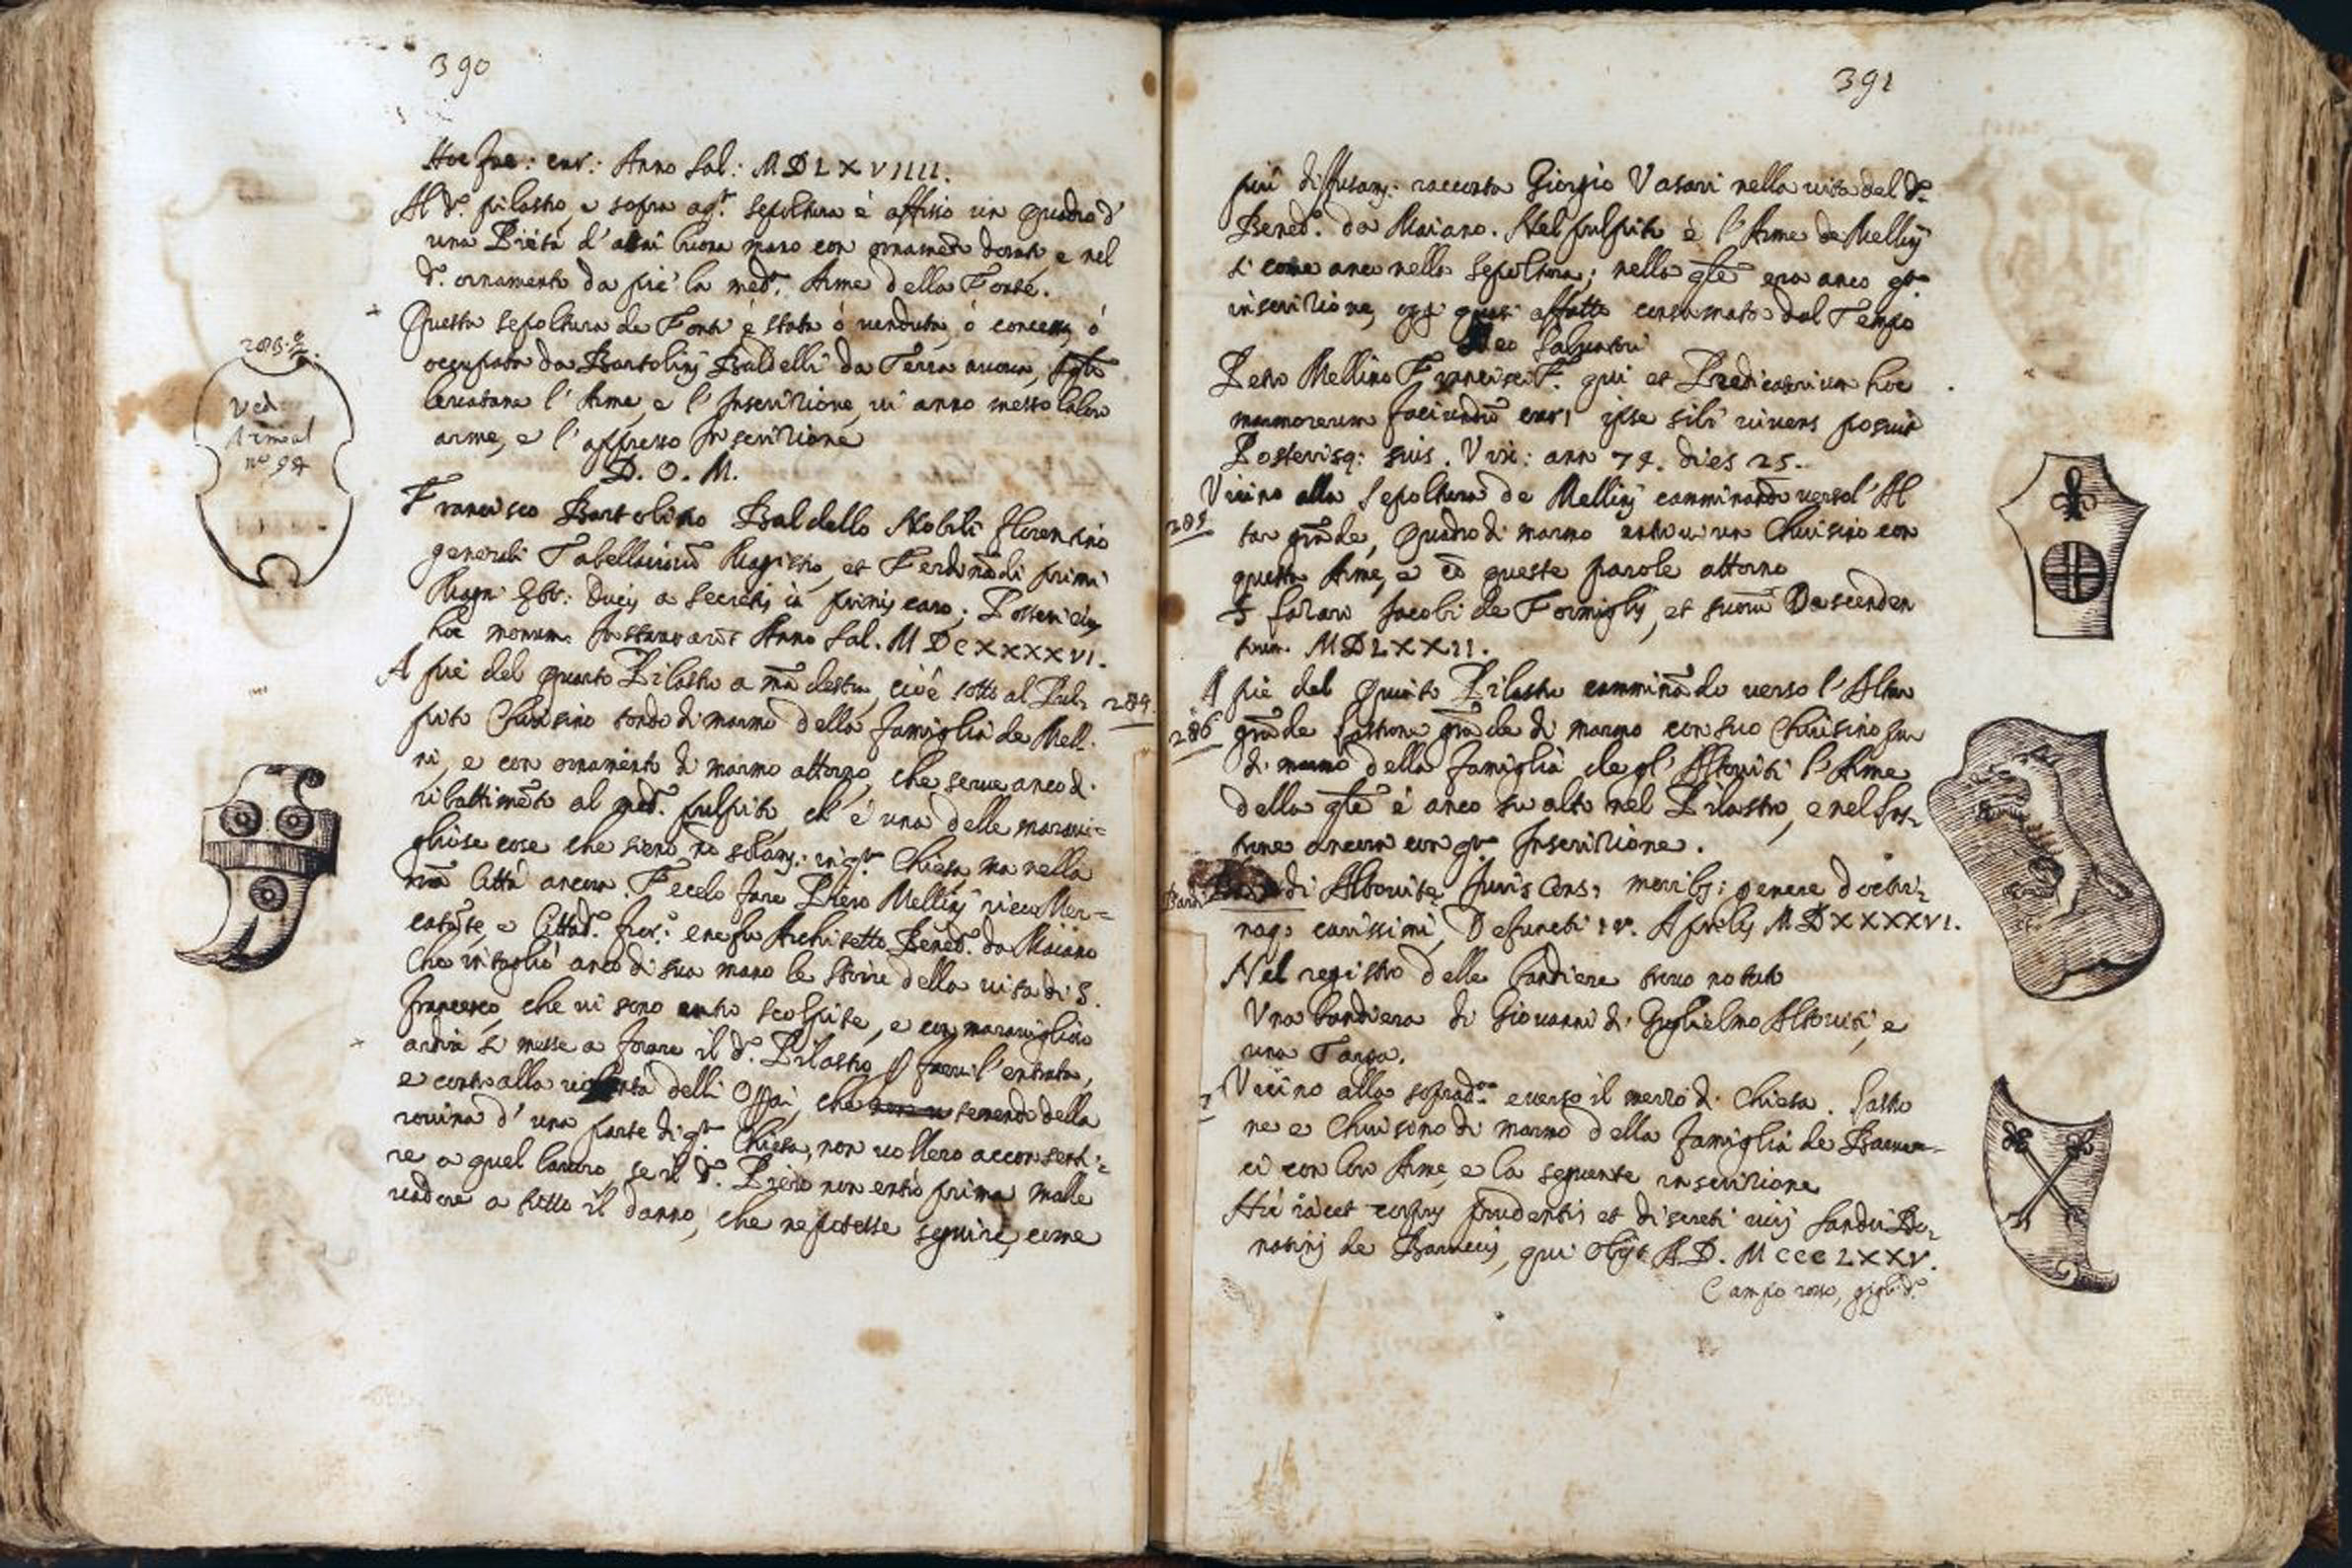 390
Hoc
Anno Sal: MDLXVIIII.
Al d.º pilastro, e sopra sepoltura è affisso un quadro d'
una Pietà d'assai buona mano con dorato e nel
d.º ornamento da piè la med.ª Arme della Fonte.
Questa sepoltura de Fonti è stata ò venduta, ò concessa, ò
occupata da Bartolinj Baldelli da Terra nuova,
levatane l'Arme, e l'Inscrizione vi anno messo la loro
arme, e l'appresso Inscrizione
D. O. M.
Francisco Bartolino Baldello Nobili florentino
generali Tabellariorũ Magistro, et Ferdinãdi primi
Magn: Etr: Ducis a secretis in primis caro; Posteri eius
hoc monum. Instaurarũt Anno Sal. MDCXXXXVI.
A piè del quarto Pilastro a mã destra, cioè sotto al Pul- 284.
pito Chiusino tondo di marmo della famiglia de Mell.
ni, e con ornamento di marmo attorno, che serve anco di
ribattimẽto al med.º pulpito, ch'è una delle maravi=
gliose cose che sieno nõ solam.: in q.ta Chiesa, ma nella
nr̃a Città ancora. Fecelo fare Piero Mellinj ricco Mer=
catãte, e Cittad.º fior.º e ne fu Architetto Bened.º da Maiano
che intagliò anco di sua mano le storie della vita di S.
Francesco, che vi sono entro scolpite, e con maraviglioso
ardire si messe a forare il d.º Pilastro farvi l'entrata,
e contr'alla delli Oppai, che temendo della
rovina d'una parte di q.ta Chiesa, non vollero acconsenti=
re a quel lavoro, se il d.º Piero non entrò prima malle
vadore a tutto il danno, che ne potesse seguire, come
283.
Ved.
n.º 94
391
più diffusam.: racconta Giorgio Vasari nella vita del d.º
Bened.º da Maiano. Nel pulpito è l'Arme de Mellinj
sì come anco nella Sepoltura; nella q̃le era anco q.ta
inscrizione, oggi quasi affatto consumata dal Tempo
Deo Salvatori
Petro Mellino Francisci F. qui et Predicatorium hoc
marmoreum faciundũ cur: ipse sibi vivens posuit
Posterisq: suis. Vix: ann 74. dies 25.
Vicino alla Sepoltura de Mellinj camminando verso l'Al
285
tar grãde, quadro di marmo entrovi un Chiusino con
questa Arme, e cõ queste parole attorno
S. Jacobi de Formiglis, et suorũ Descenden
tium. MDLXXII.
A piè del quinto Pilastro camminãdo verso l'Altar
286
grãde lastrone grãde di marmo con suo Chiusino pur
di marmo della famiglia degl'Altoviti l'Arme
della q̃le è anco su alto nel Pilastro, e nel las-
trone ancora con q.ta Inscrizione.
Bardi
di Altovitę Juris Cons, moribs: genere doctri-
naq: carissimi, Defuncti IV. Aprilis MDXXXXVI.
Nel registro delle bandiere trovo notato
Una bandiera di Giovanni di Guglielmo Altoviti, e
una Targa.
Vicino alla soprad.ta e verso il mezzo di Chiesa. Lastro
ne e Chiusino di marmo della famiglia de Baronc-
ci con loro Arme, e la seguente inscrizione
Hic iacet corpus prudentis et discreti viri Sandri Do-
natinj de Baruccij, qui obijt A.D. MCCCLXXV.
Campo rosso, gigli d.º